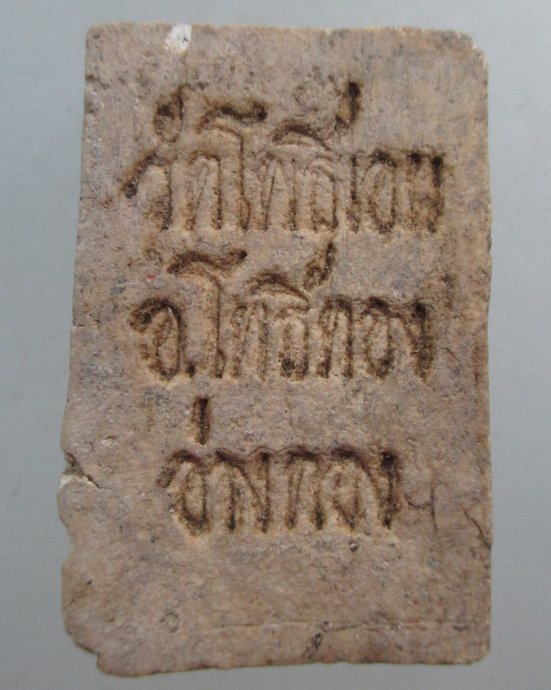 วัดโพธิ์เอน
อ.โพธิ์ทอง
อ่างทอง